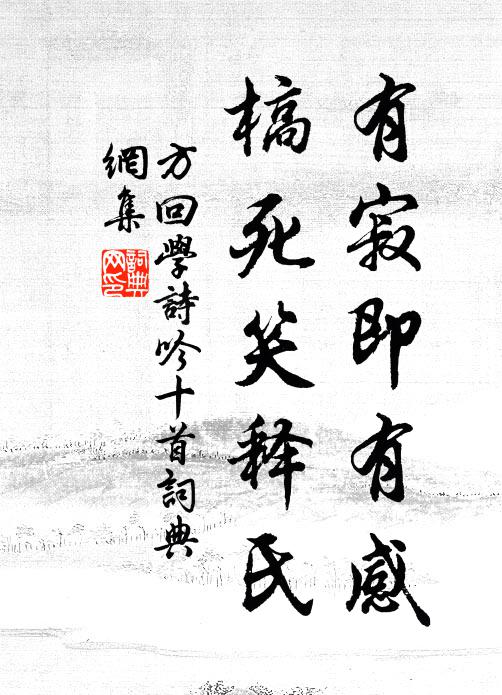 有寂即有感
槁死笑释氏
方回學詩吟十首詞典
網集
詞典
网印